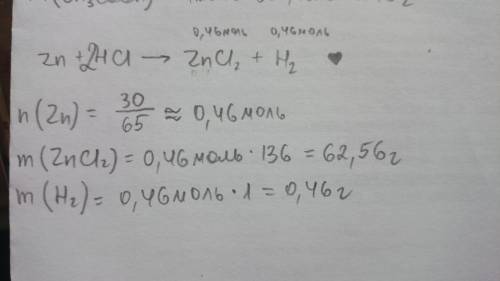 0,46моль 0,46моль
Zn + 2HCl → ZnCl₂ + H₂
n(Zn) = 30/65 ≈ 0,46моль
m(ZnCl₂) = 0,46моль · 136 = 62,56г
m(H₂) = 0,46моль · 1 = 0,46г